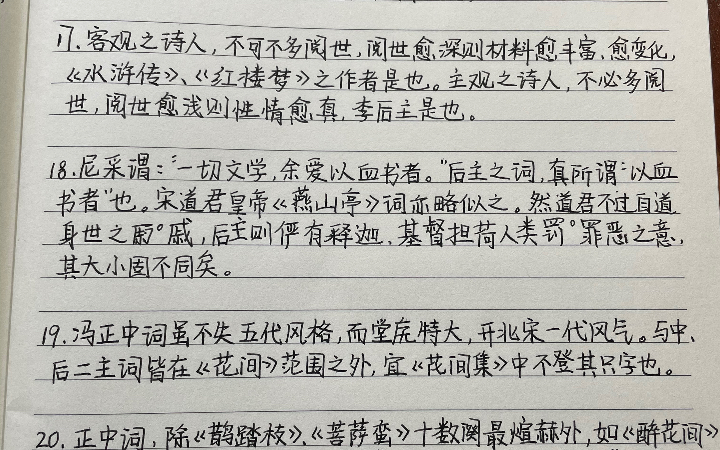 17.客观之诗人,不可不多阅世,阅世愈深则材料愈丰富、愈变化,
《水浒传》、《红楼梦》之作者是也。主观之诗人,不必多阅
世,阅世愈浅则性情愈真,李后主是也。
18.尼采谓:“一切文学,余爱以血书者。”后主之词,真所谓“以血
书者”也。宋道君皇帝《燕山亭》词亦略似之。然道君不过自道
身世之戚,后主则俨有释迦、基督担荷人类罪恶之意,
其大小固不同矣。
19.冯正中词虽不失五代风格,而堂庑特大,开北宋一代风气。与中、
后二主词皆在《花间》范围之外,宜《花间集》中不登其只字也。
20.正中词,除《鹊踏枝》、《菩萨蛮》十数阕最煊赫外,如《醉花间》